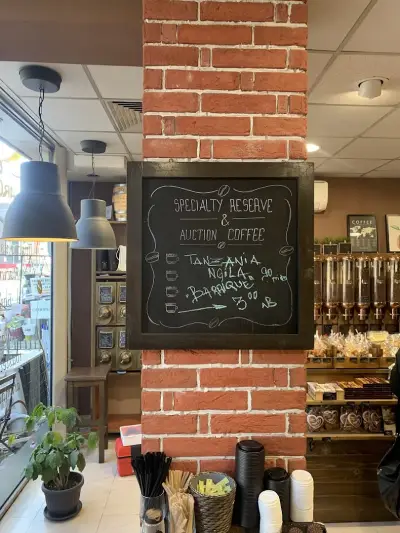 SPECIALTY RESERVE
&
AUCTION COFFEE
TANZANIA
NGILA
"BARRIQUE"
3⁰⁰ ЛВ
COFFEE